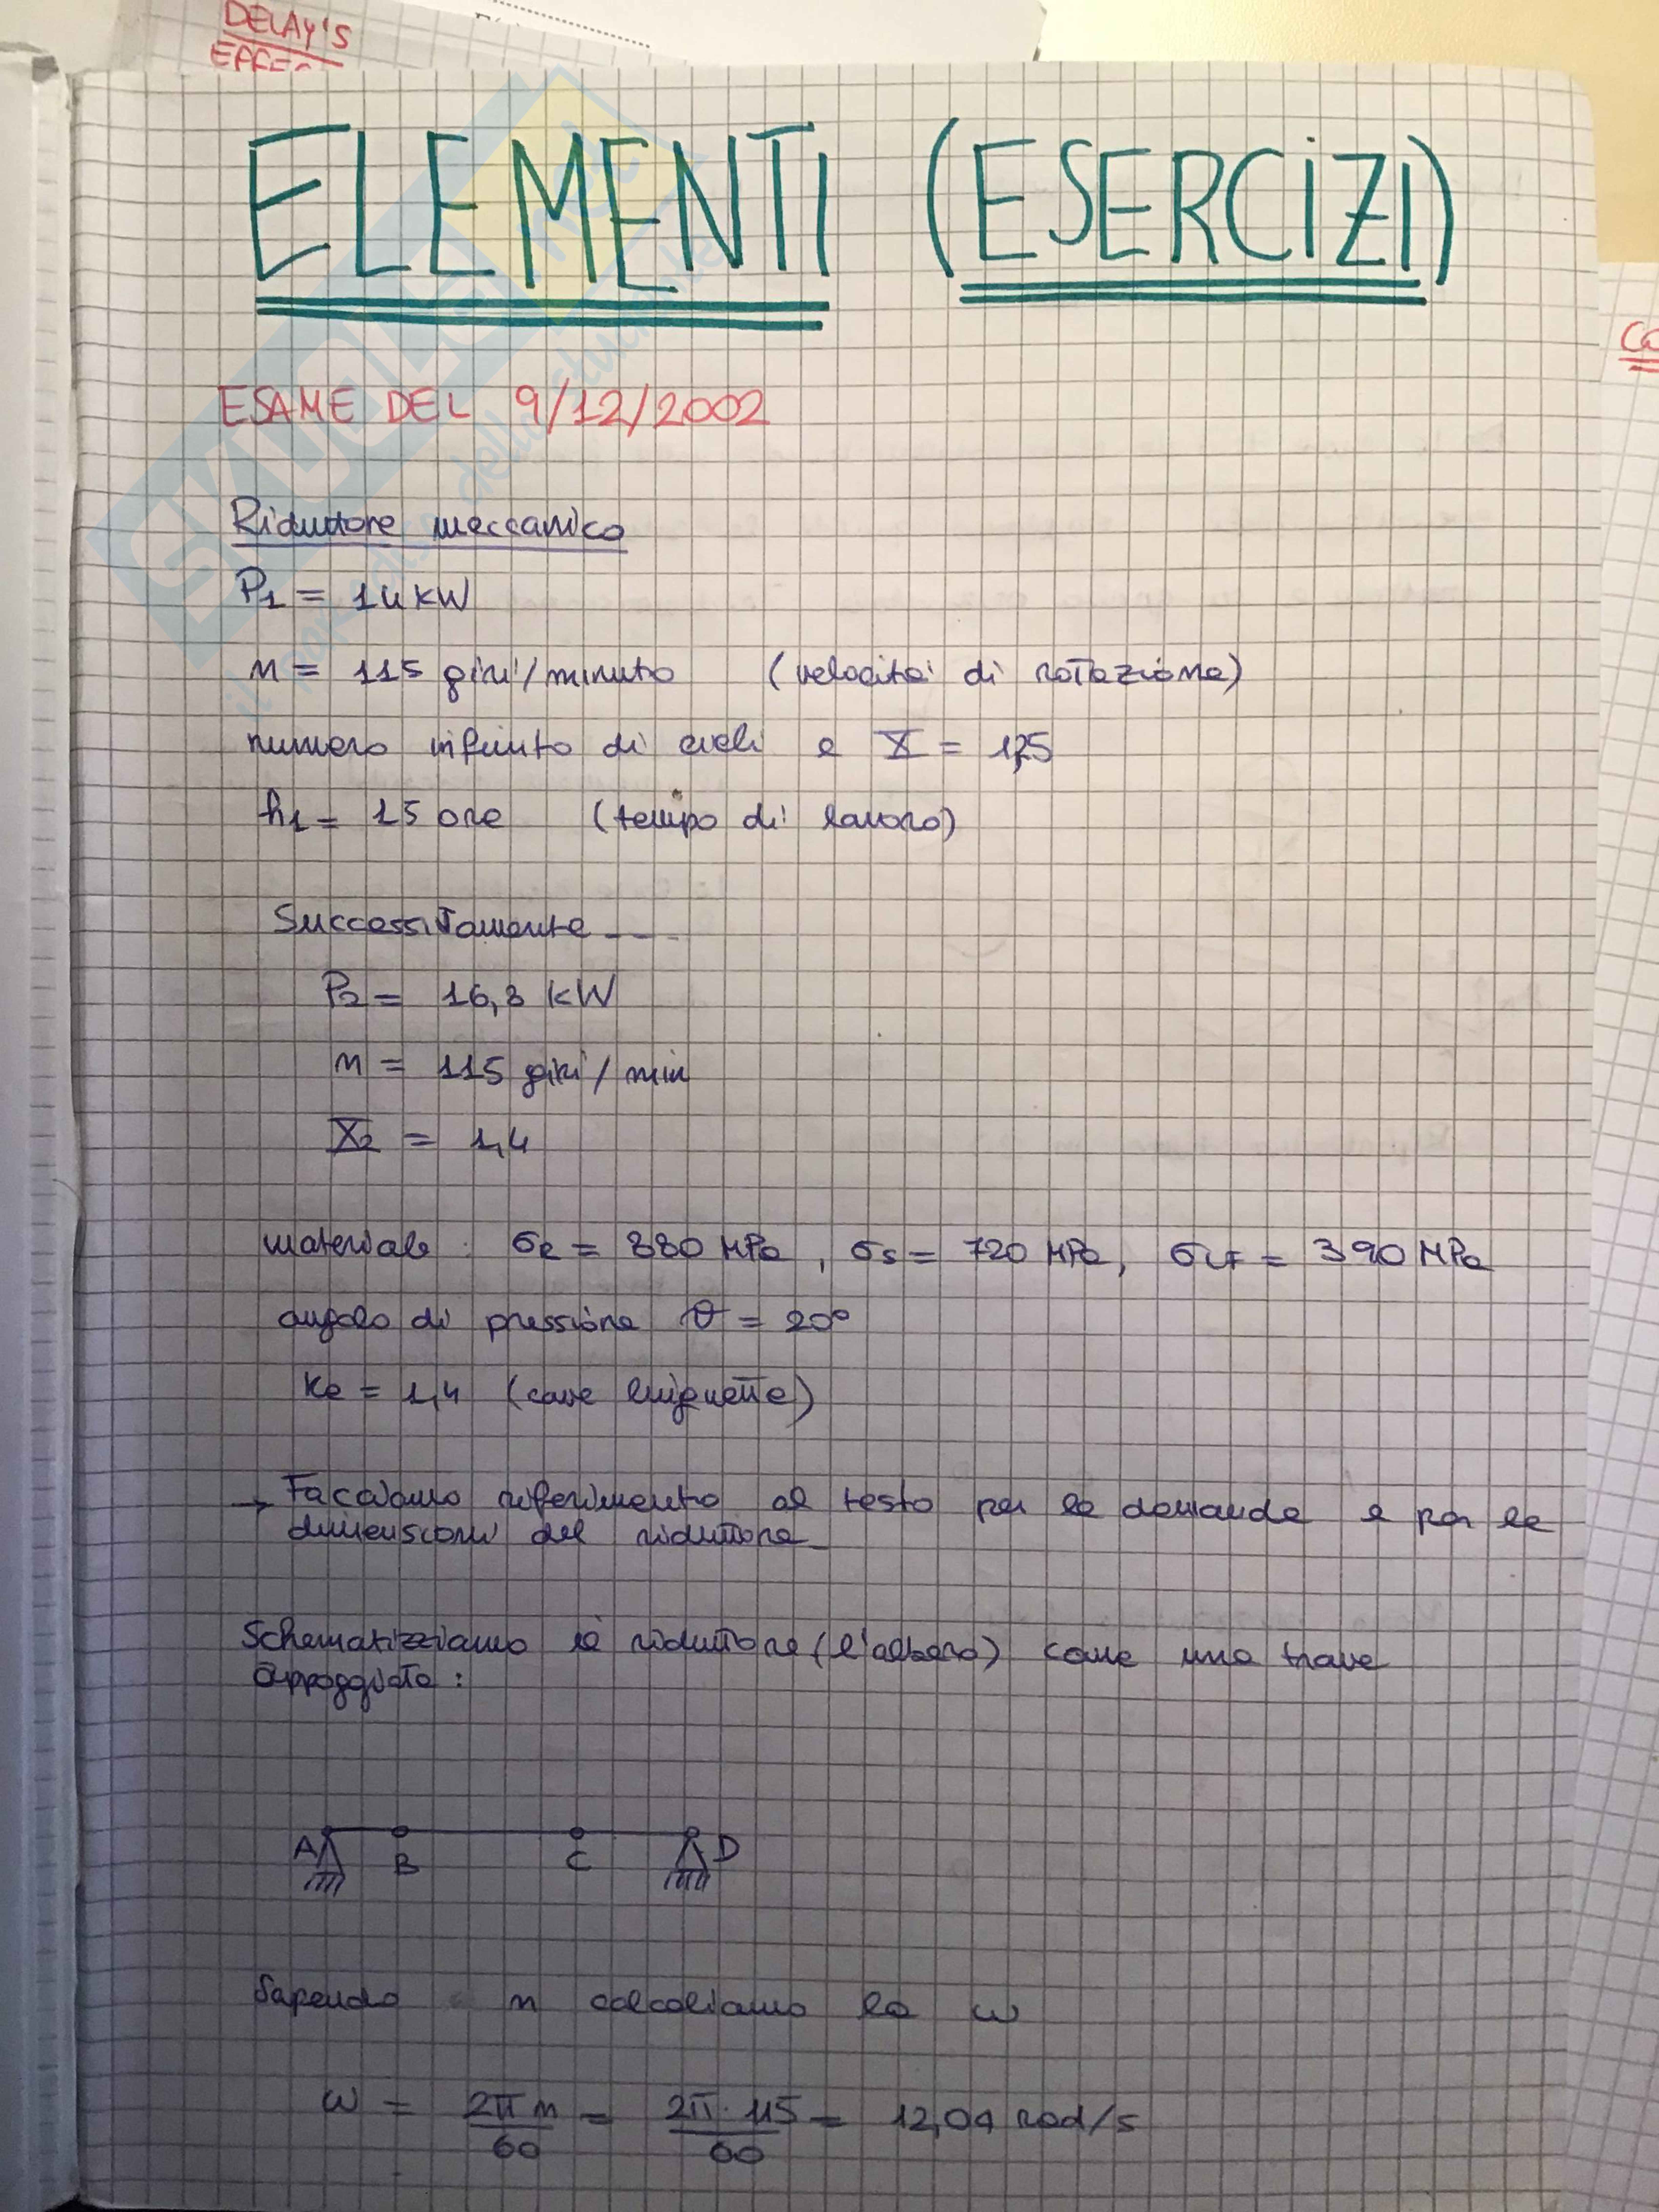 DELAY'S
EFFEC
ELEMENTI (ESERCIZI)
ESAME DEL 9/12/2002
Riduttore meccanico
P1 = 14 kW
n = 115 giri/minuto (velocità di rotazione)
numero infinito di cicli e X = 1,75
h1 = 15 ore (tempo di lavoro)
Successivamente ----
P2 = 16,8 kW
n = 115 giri/min
X2 = 1,4
materiale: σR = 880 MPa, σs = 720 MPa, σLF = 390 MPa
angolo di pressione θ = 20°
Ke = 1,4 (cave linguette)
→ Facciamo riferimento al testo per le domande e per le
dimensioni del riduttore
Schematizziamo il riduttore (l'albero) come una trave
appoggiata:
A B C D
Sapendo n calcoliamo la ω
ω = 2πn/60 = 2π·115/60 = 12,04 rad/s
SKUOLA.net
il portale dello studente